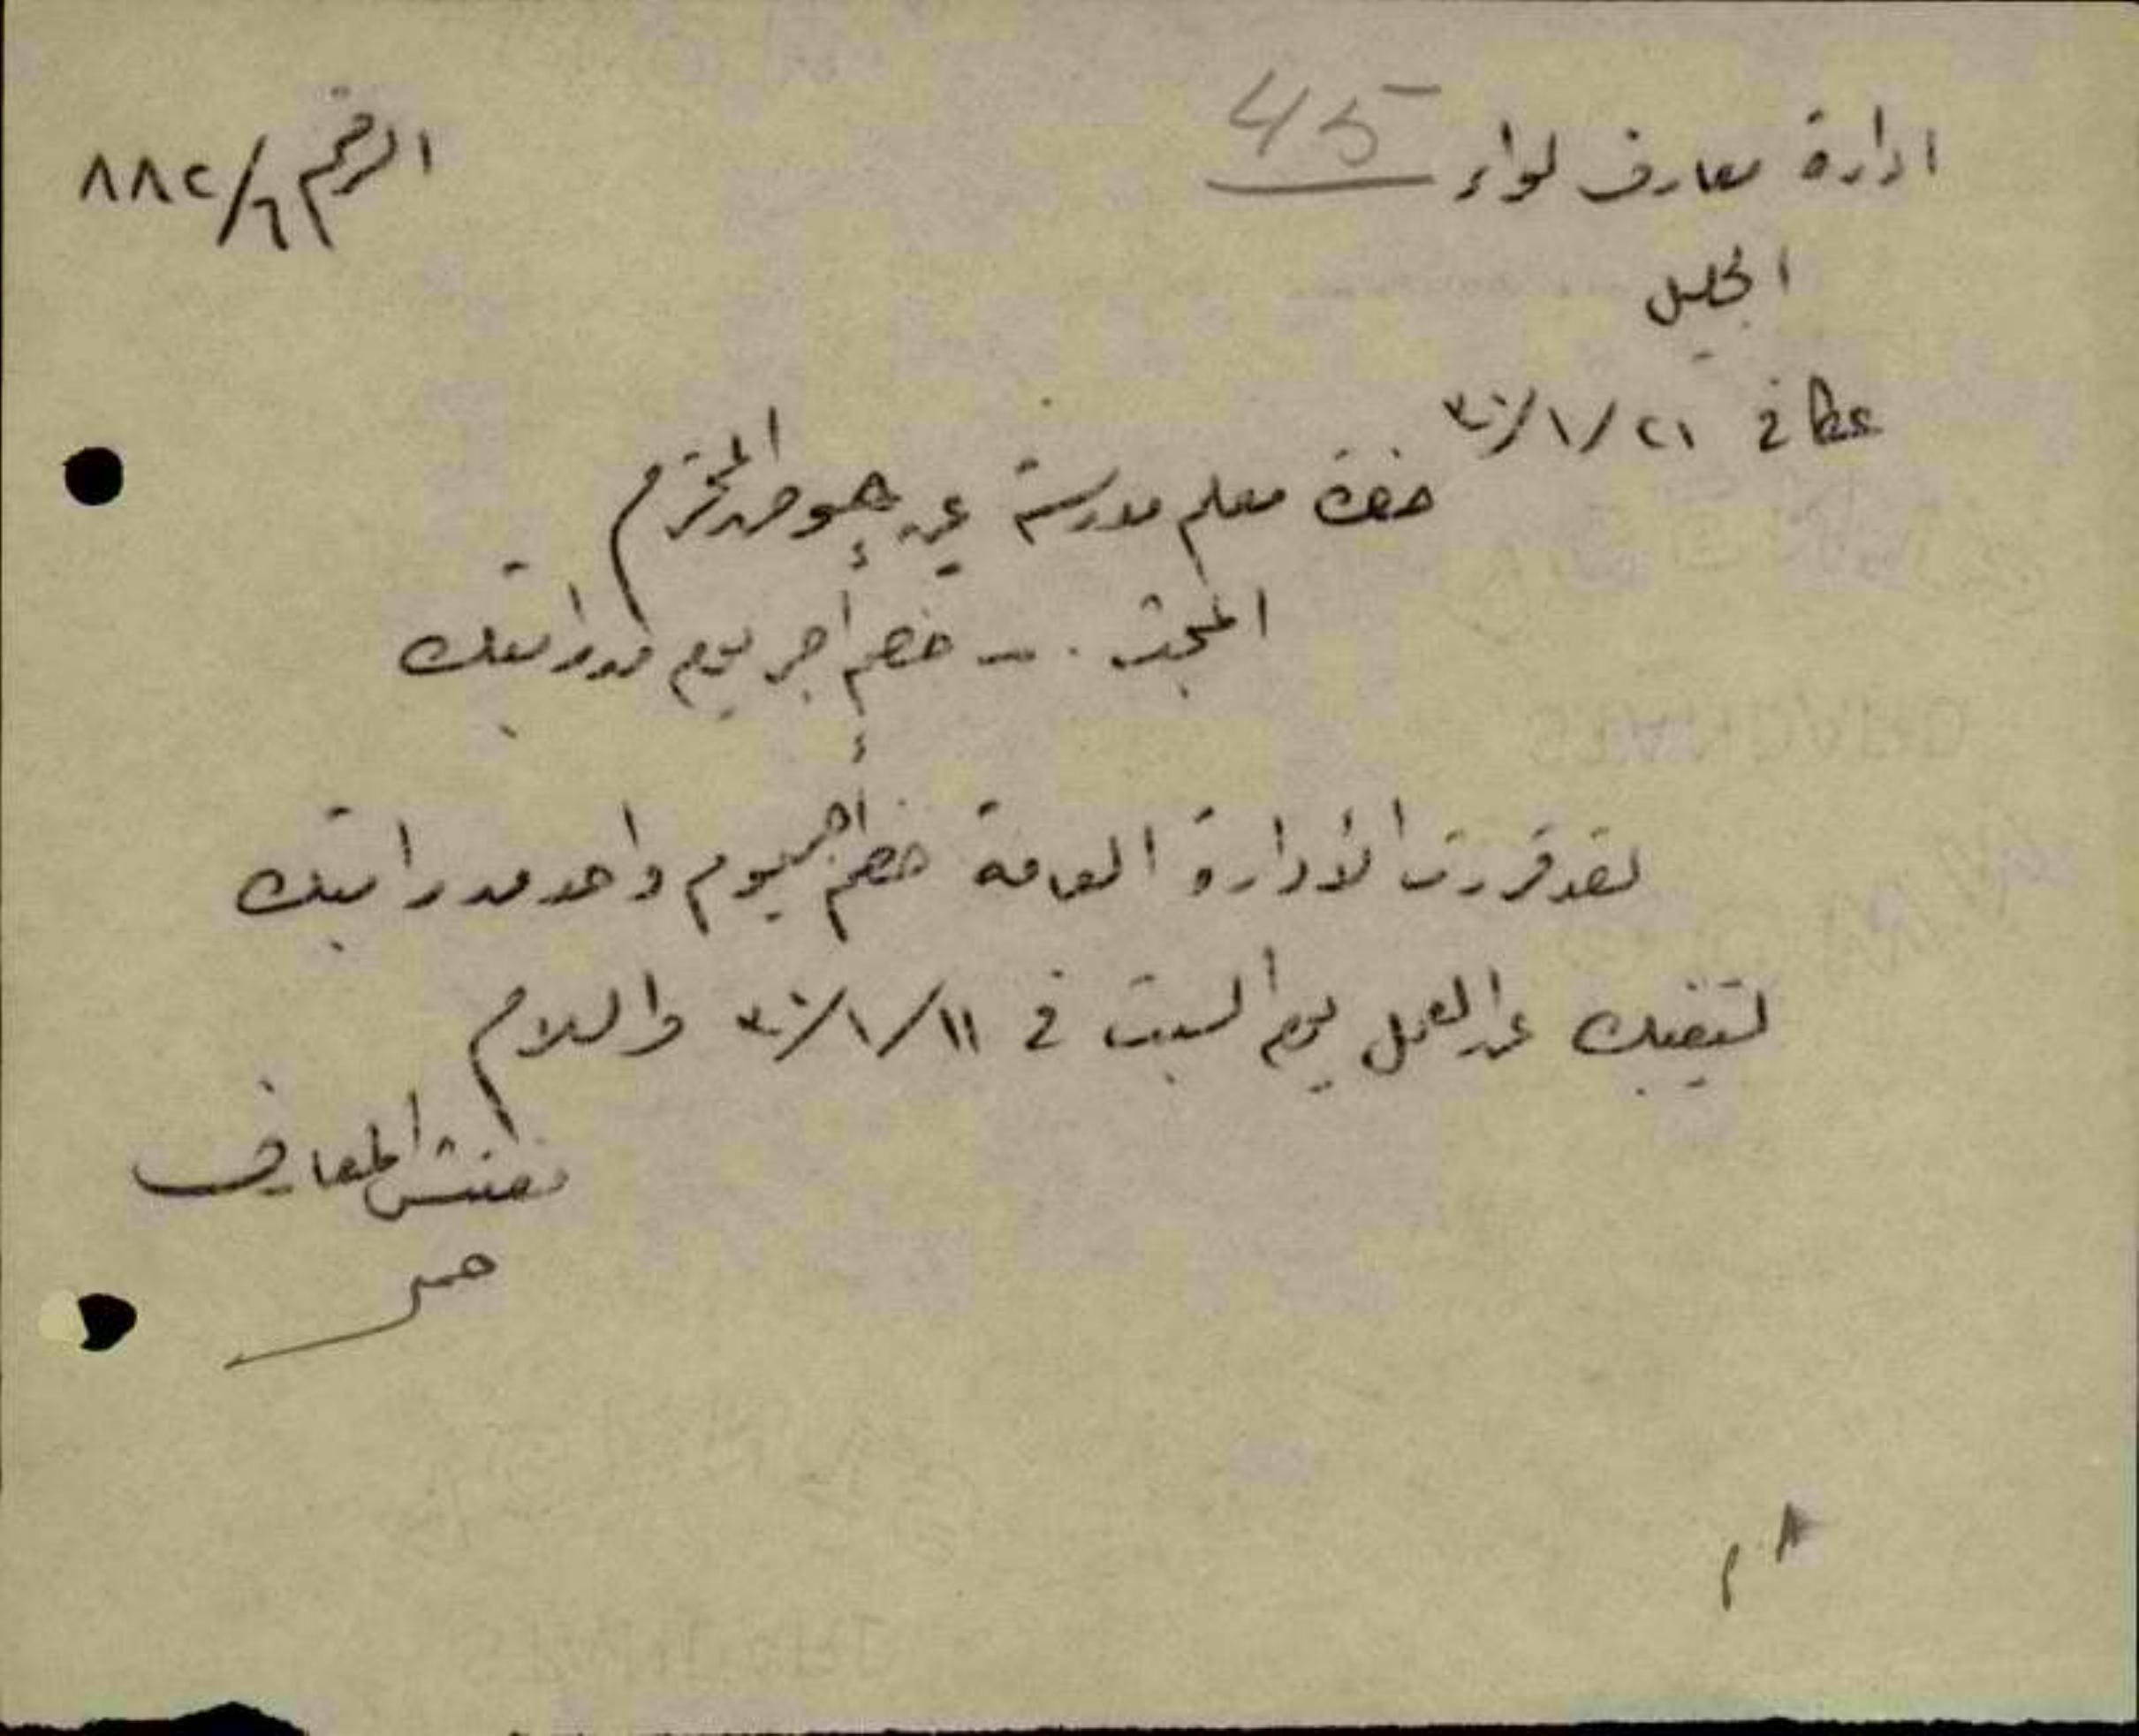 ادارة معارف لواء 45
الرقم ٦/٨٨٢
الجليل
عكا في ٢١/١/٣٠
حضرة معلم مدرسة عين حوض المحترم
المبحث :- خصم أجر يوم من راتبك
لقد قررت الأدارة العامة خصم أجر يوم واحد من راتبك
لتغيبك عن العمل يوم السبت في ١١/١/٣٠ والسلام
مفتش المعارف